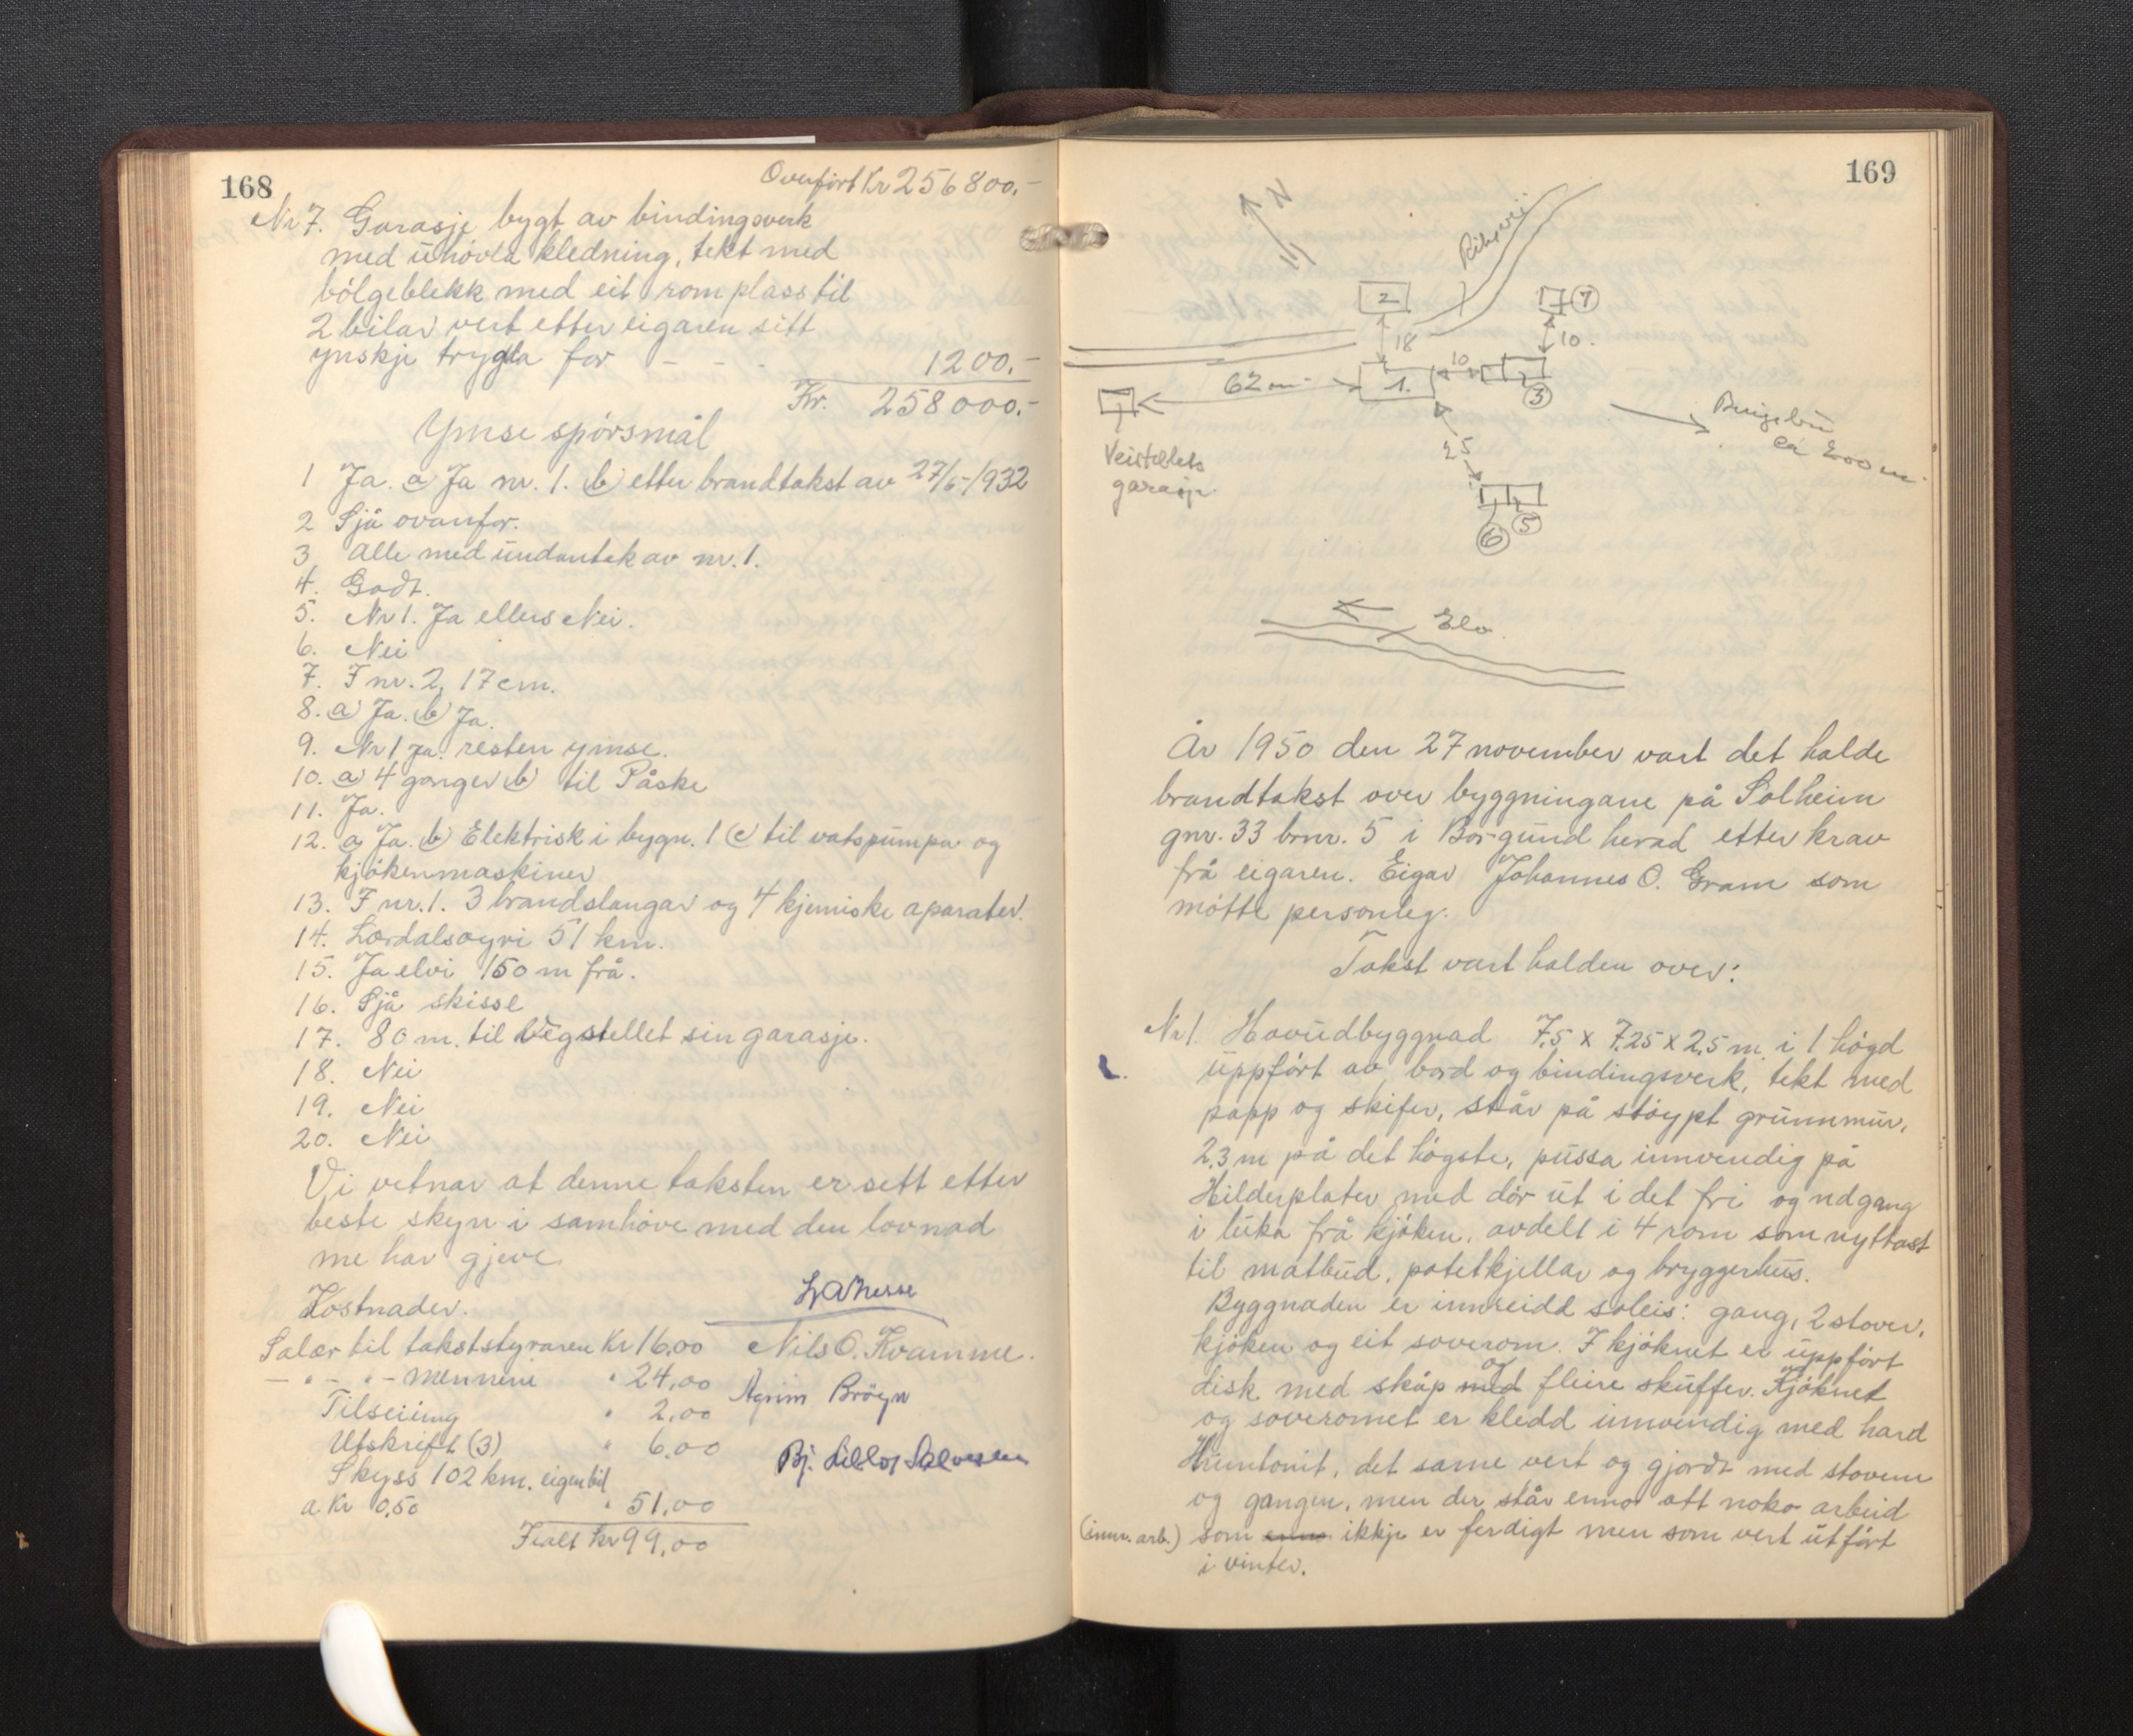 168
Overført Kr 256800.-
Nr 7. Garasje bygt av bindingsverk
med uhøvla kledning, tekt med
bølgeblekk med eit rom plass til
2 bilar vert etter eigaren sitt
ynskje trygda for - - - 1200.-
Kr. 258000.-
Ymse spørsmål
1 Ja. a) Ja nr. 1. b) etter brandtakst av 27/5-1932
2 Sjå ovanfor.
3 Alle med undantak av nr. 1.
4. Godt.
5. Nr 1. Ja ellers Nei.
6. Nei
7. I nr. 2, 17 cm.
8. a) Ja. b) Ja.
9. Nr 1 ja. resten ymse.
10. a) 4 gonger b) til Påske
11. Ja.
12. a) Ja. b) Elektrisk i bygn. 1 c) til vatspumpa og
kjøkenmaskiner
13. I nr. 1. 3 brandslangar og 4 kjemiske aparater.
14. Lærdalsøyri 51 km.
15. Ja elvi 150 m frå.
16. Sjå skisse
17. 80 m. til Vegstellet sin garasje.
18. Nei
19. Nei
20. Nei
Vi vetnar at denne taksten er sett etter
beste skyn i samhøve med den lovnad
me har gjeve
Kostnader.
Salær til takststyraren Kr 16,00 Nils O. Kvamme.
- " - " - mennene " 24,00
Tilseiing " 2,00
Utskrift (3) " 6,00
Skyss 102 km. eigen bil
a Kr 0,50 " 51,00
Ialt Kr 99,00
169
N
Riksvei
2
7
18
10.
10
1.
3
62 m.
Veistellets
garasje.
25
ca 200 m.
6
5
Elv.
År 1950 den 27 november vart det halde
brandtakst over byggningane på Solheim
gnr. 33 brnr. 5 i Borgund herad etter krav
frå eigaren. Eigar Johannes O. Gram som
møtte personleg.
Takst vart halden over:
Nr 1. Hovudbyggnad 7,5 x 7,25 x 2,5 m. i 1 høgd
uppført av bord og bindingsverk, tekt med
papp og skifer, står på støypt grunnmur,
2,3 m på det høgste, pussa innvendig på
Hilderplater med dør ut i det fri og ndgang
i luka frå kjøken, avdelt i 4 rom som nyttast
til matbud, potetkjellar og bryggerhus.
Byggnaden er innreidd soleis: gang, 2 stover,
kjøken og eit soverom. I kjøknet er uppført
disk med skåp og fleire skuffer. Kjøknet
og soveromet er kledd innvendig med hard
Huntonit, det same vert og gjordt med stovene
og gangen, men der står enno att noko arbeid
(innv. arb.) som enno ikkje er ferdigt men som vert utført
i vinter.